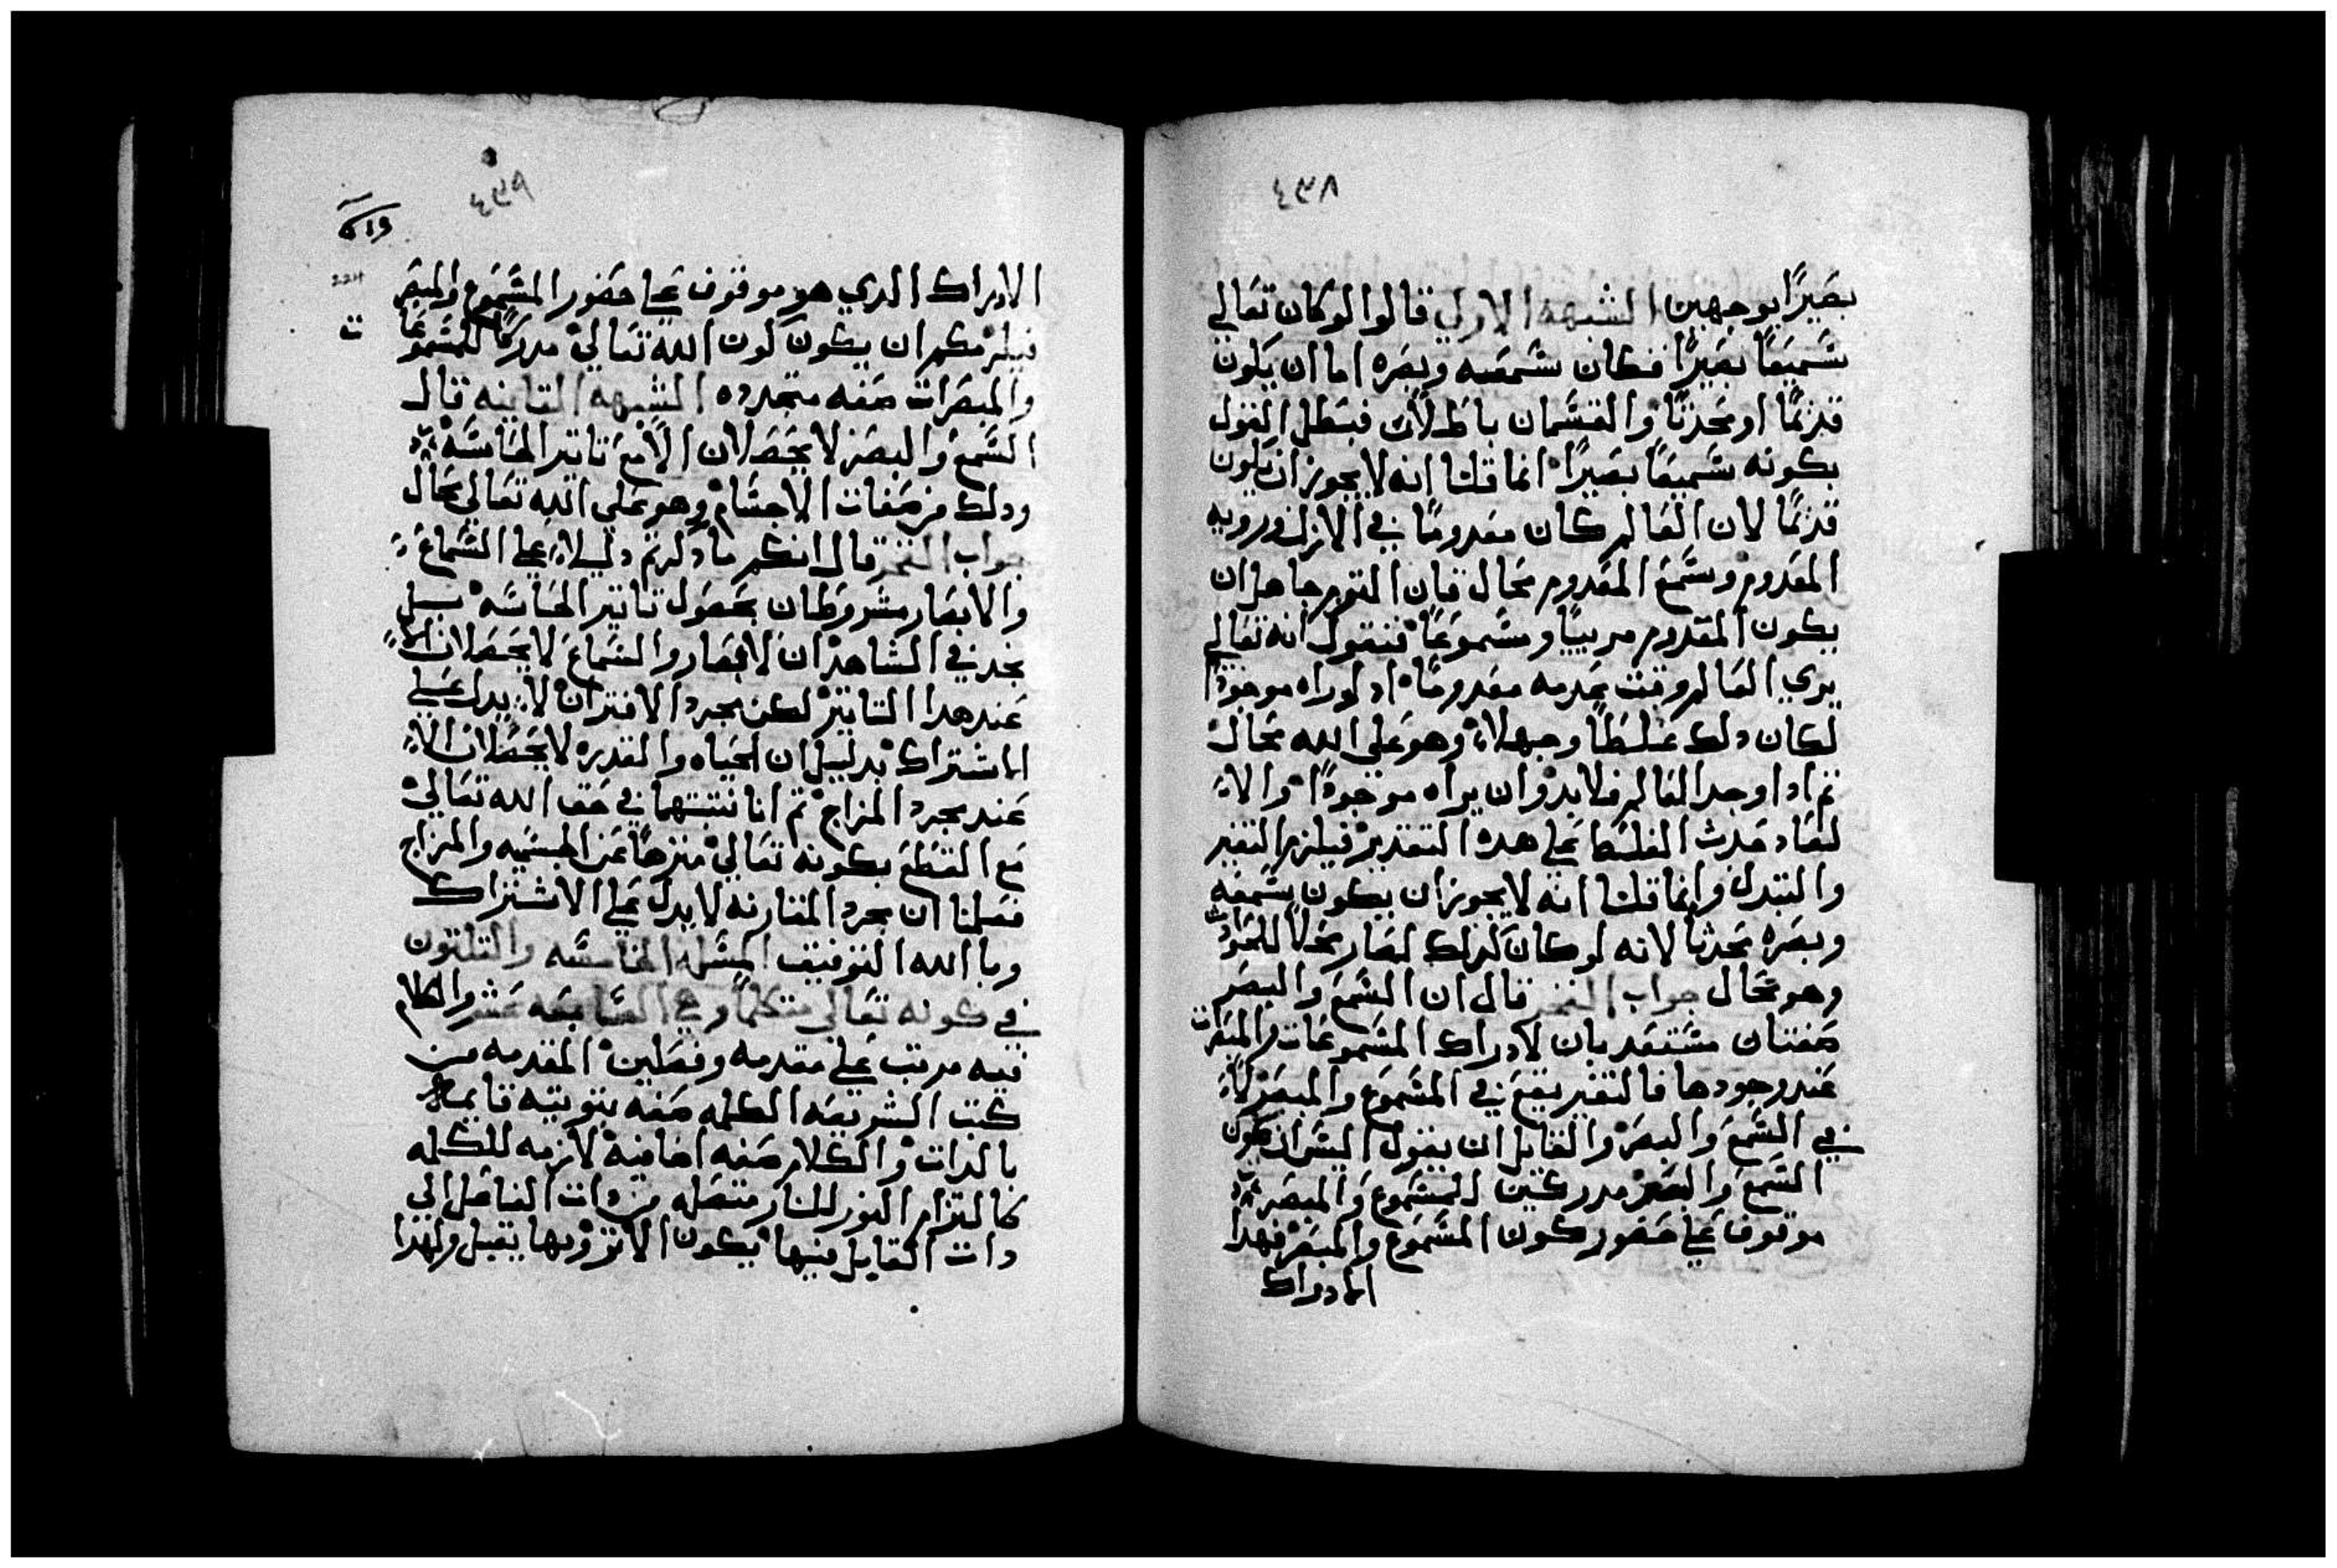 ٤٣٨
بصيرًا بوجهين الشبهه الاولي قالوا لو كان تعالي
سميعًا بصيرًا فكان سمعه وبصره اما ان يكون
قديمًا او محدثًا والقسمان باطلان فبطل القول
بكونه سميعًا بصيرًا انما قلنا انه لا يجوز ان يكون
قديمًا لان العالم كان معدومًا في الازل ورويه
المعدوم وسمع المعدوم محال فان القوم جاهل ان
يكون المعدوم مرييًا ومسموعًا فنقول انه تعالي
يري العالم وقت عدمه معدومًا اد لو راه موجودًا
لكان دلك غلطًا وجهلاً وهو علي الله محال
تم ادا وجد العالم فلا بد وان يراه موجودًا والا
لعاد حدث الغلط علي هده التقدير فيلزم التغير
والتبدل وانما قلنا انه لا يجوز ان يكون سمعه
وبصره محدثًا لانه لو كان كدلك لصار محلاً للحوادث
وهو محال جواب الفخر قال ان السمع والبصر
صفتان مستعدتان لادراك المسموعات والمبصرات
عند وجودها فالتغير يقع في المسموع والمبصر لا
في السمع والبصر والقايل ان يقول اليس ان كون
السمع والبصر مدركين المسموع والمبصر
موقوف علي حضور كون المسموع والمبصر فهدا
الادراك
٤٣٩
219
224
ت
الادراك الدي هو موقوف علي حضور المسموع والمبصر
فيلزمكم ان يكون كون الله تعالي مدركًا للمسموعًا
والمبصرات صفه متجدده الشبهه التانيه قال
السمع والبصر لا يحصلان الا مع تاتير الحاسه
ودلك من صفات الاجسام وهو علي الله تعالي محال
جواب الفخر قال انكم ما دكرتم دليلاً علي السماع
والابصار مشروطان بحصول تاتير الحاسه بل
نجد في الشاهد ان الابصار والسماع لا يحصلان الا
عند هدا التاتير لكن مجرد الاقتران لا يدل علي
الاشتراك بدليل ان الحياه والقدره لا يحصلان الا
عند مجرد المزاج تم انا نتبتهما في حق الله تعالي
مع القطع بكونه تعالي منزهًا عن الجسميه والمزاج
فعلمنا ان مجرد المقارنه لا يدل علي الاشتراك
وبالله التوفيق المسله الخامسه والتلتون
في كونه تعالي متكلمًا وهي السابعه عشر والكلام
فيه مرتب علي مقدمه وفصلين المقدمه من
كتب الشريعه الكلمه صفه بتوتيه قايمه
بالدات والكلام صفه اضافيه لازمه للكلمه
كالتزام النور للنار متصله من دات الفاعل الي
دات القايل فيها يكون الاتر وبها يقبل ولهدا